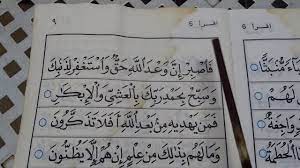 إقرأ 6
إقرأ 6 ٩
لَهُمْ
فَاصْبِرْ إِنَّ وَعْدَ اللَّهِ حَقٌّ وَاسْتَغْفِرْ لِذَنْبِكَ
وَسَبِّحْ بِحَمْدِ رَبِّكَ بِالْعَشِيِّ وَالْإِبْكَارِ
فَمَنْ يَهْدِيهِ مِنْ بَعْدِ اللَّهِ أَفَلَا تَذَكَّرُونَ
وَمَا لَهُمْ بِذَٰلِكَ مِنْ عِلْمٍ إِنْ هُمْ إِلَّا يَظُنُّونَ